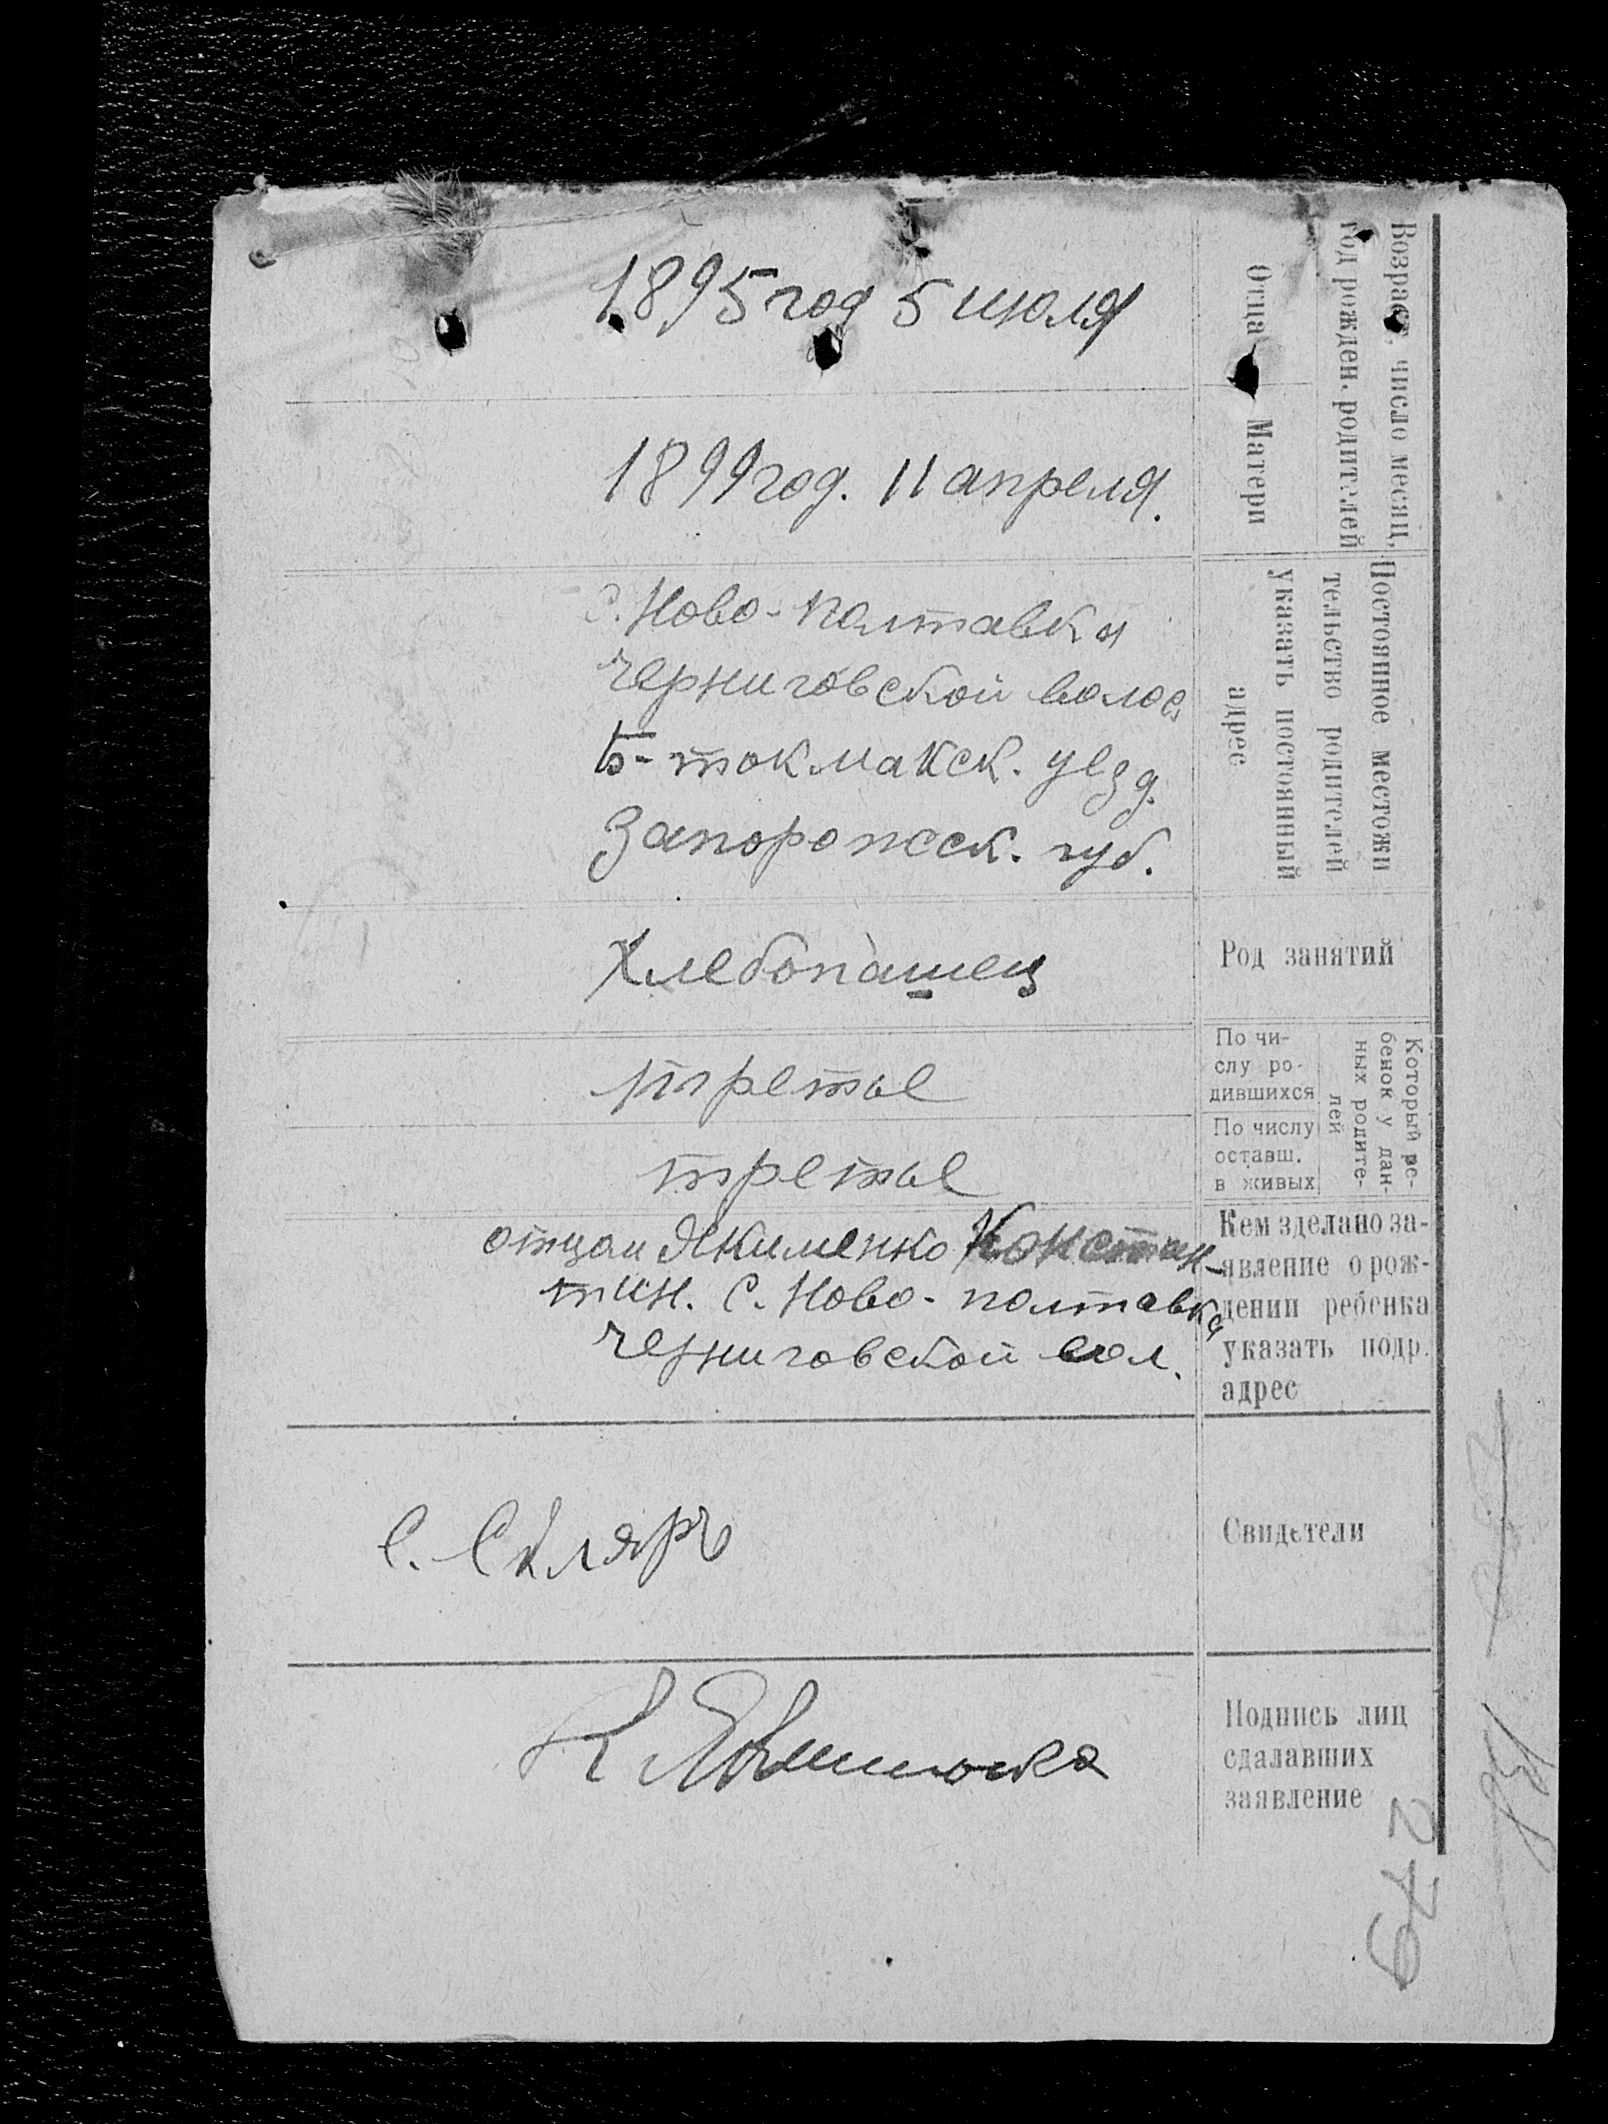 Возраст, число месяц,
год рожден. родителей
Отца
1895 год 5 июля
Матери
1899 год. 11 апреля.
Постоянное местожи
тельство родителей
указать постоянный
адрес
с. Ново-Полтавки
Черниговской волос
Б-токмакск. уезд.
Запорожск. губ.
Род занятий
Хлебопашец
Который ре-
бенок у дан-
ных родите-
лей
По чи-
слу ро-
дившихся
третье
По числу
оставш.
в живых
третье
Кем зделано за-
явление о рож-
дении ребенка
указать подр.
адрес
отцом Якименко Констан-
тин. с. Ново-полтавка
Черниговской вол.
Свидетели
С. Скляръ
Подпись лиц
сдалавших
заявление
К Якименко
279